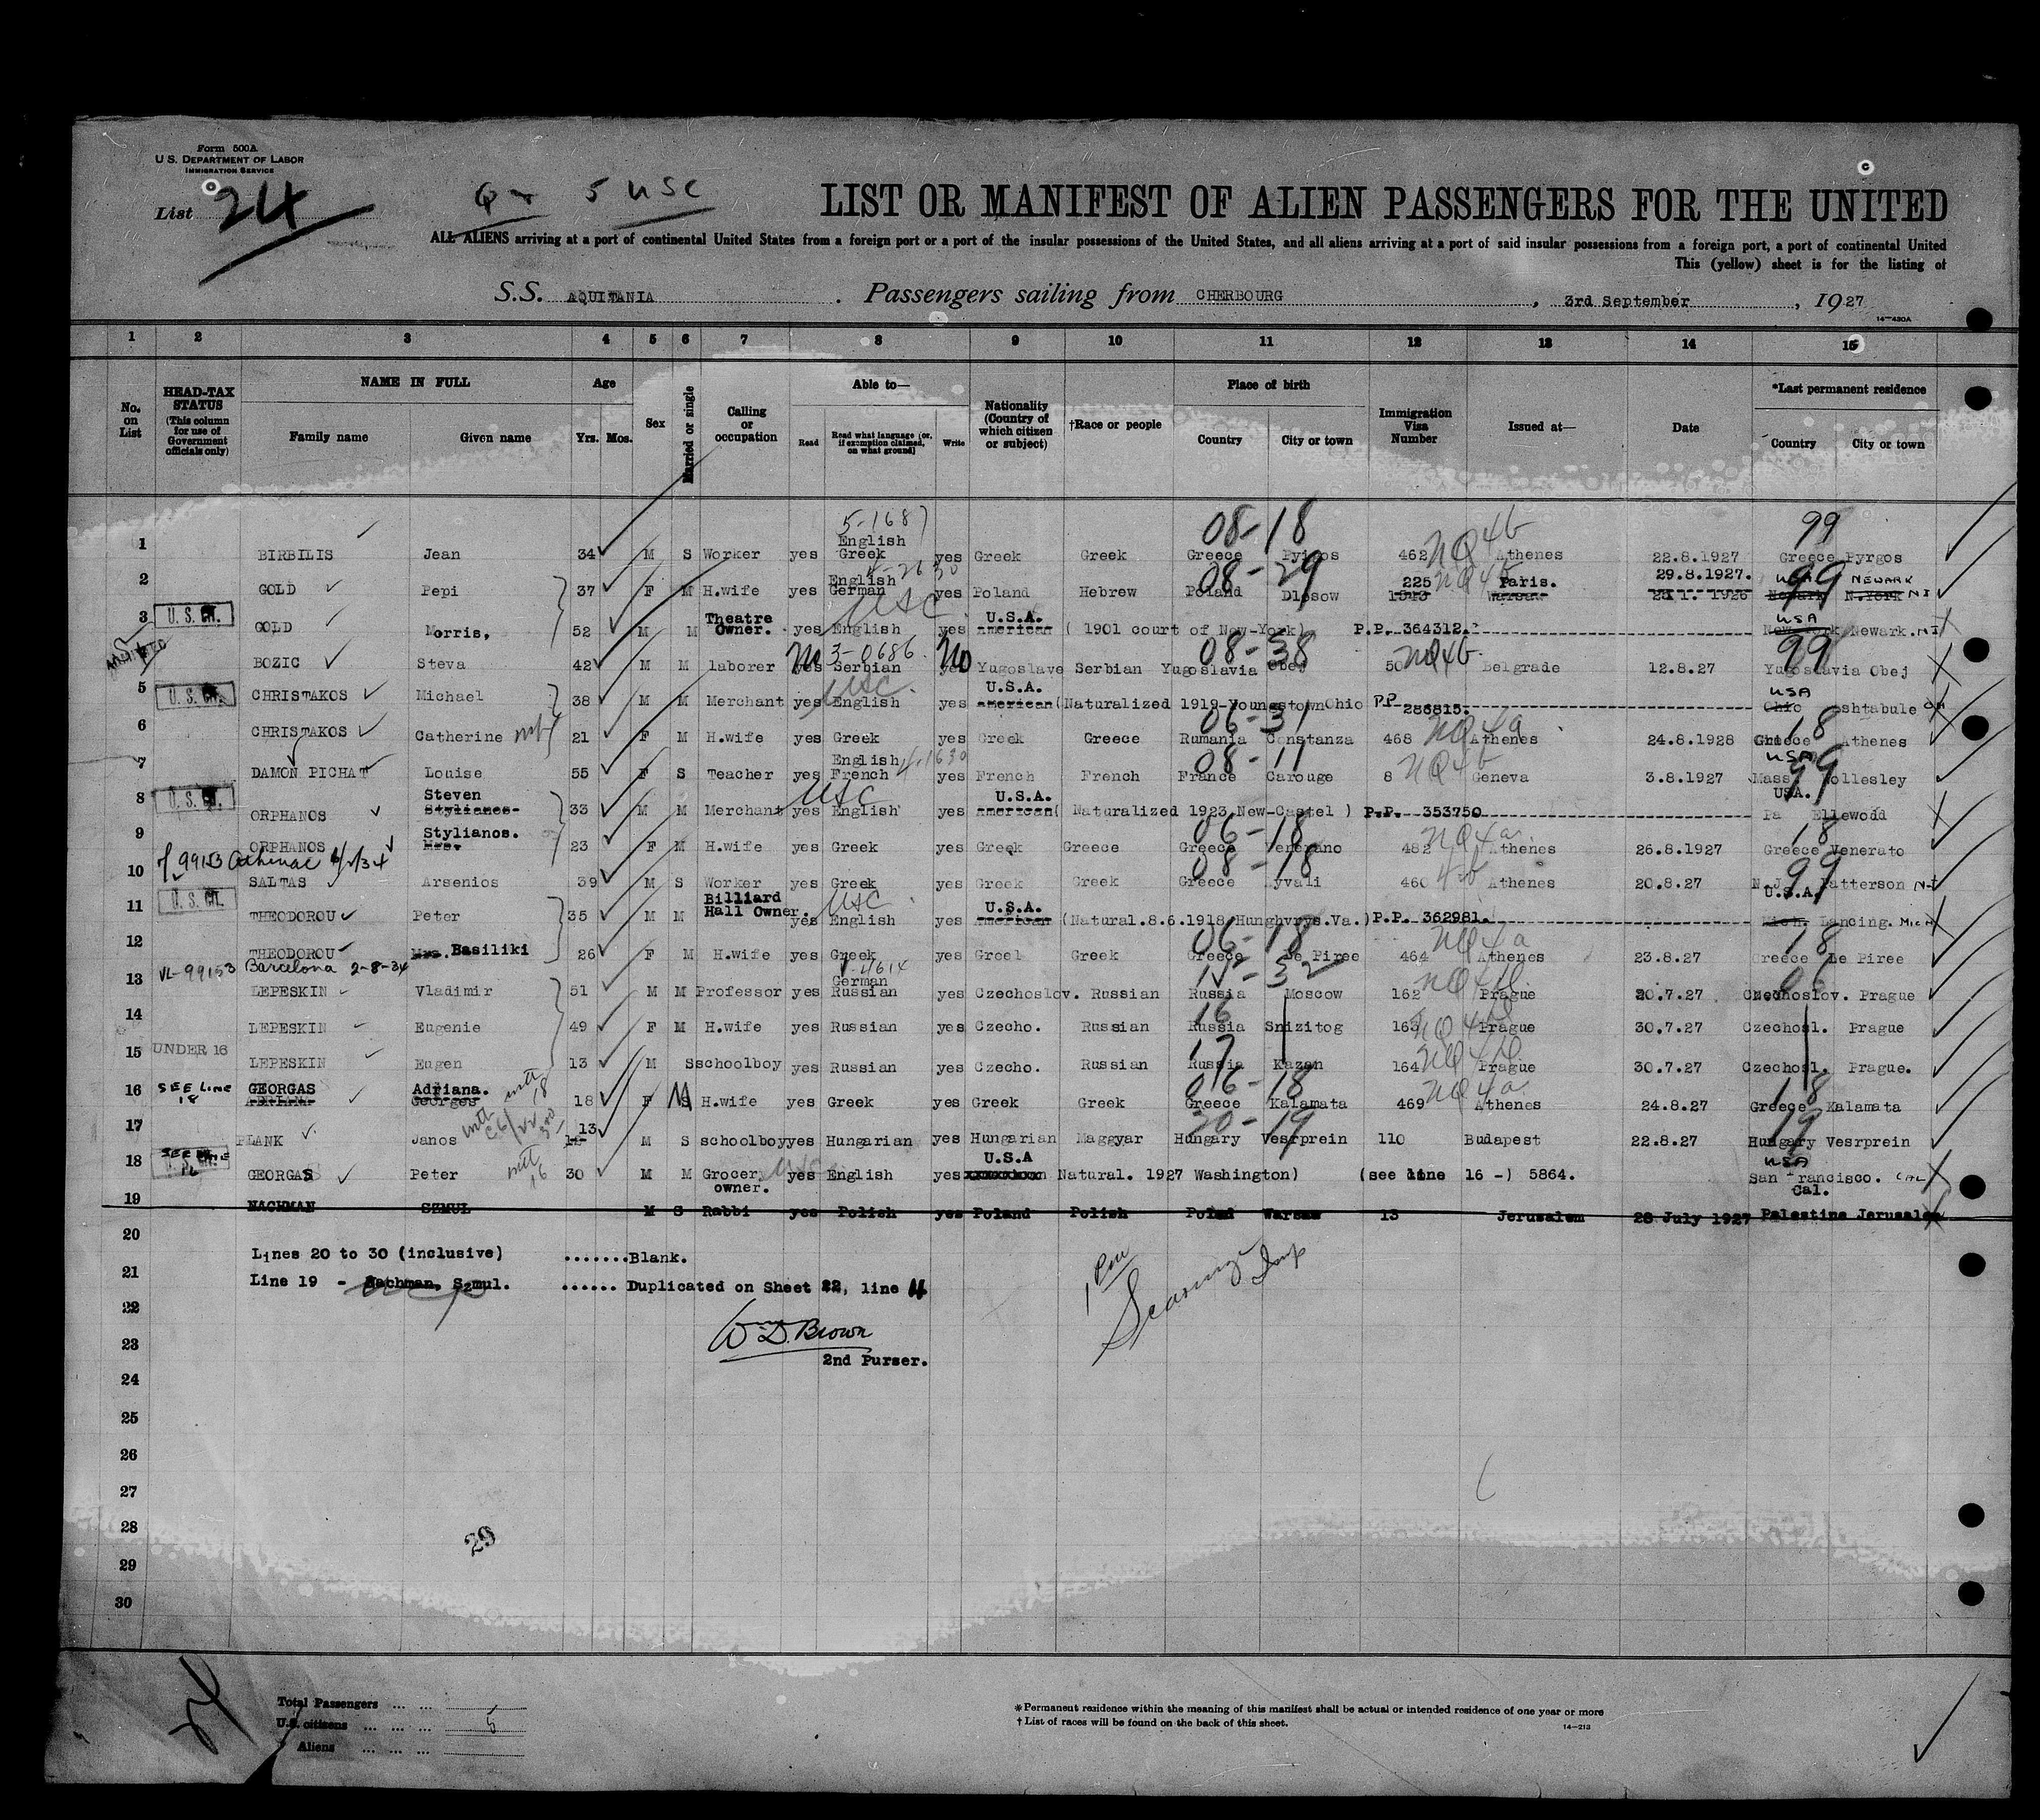 Form 500A
U. S. DEPARTMENT OF LABOR
IMMIGRATION SERVICE
List 24
5 USC
LIST OR MANIFEST OF ALIEN PASSENGERS FOR THE UNITED
ALL ALIENS arriving at a port of continental United States from a foreign port or a port of the insular possessions of the United States, and all aliens arriving at a port of said insular possessions from a foreign port, a port of continental United
This (yellow) sheet is for the listing of
S.S. AQUITANIA. Passengers sailing from CHERBOURG, 3rd September, 1927
14—430A
1 2 3 4 5 6 7 8 9 10 11 12 13 14 15
No. on List
HEAD-TAX STATUS (This column for use of Government officials only)
NAME IN FULL Family name Given name
Age Yrs. Mos.
Sex
Married or single
Calling or occupation
Able to— Read Read what language (or, if exemption claimed, on what ground) Write
Nationality (Country of which citizen or subject)
†Race or people
Place of birth Country City or town
Immigration Visa Number
Issued at—
Date
*Last permanent residence Country City or town
5-168 08-18 NQ4b 99
1 BIRBILIS Jean 34 M S Worker yes English Greek yes Greek Greek Greece Pyrgos 462 Athenes 22.8.1927 Greece Pyrgos
08-29 NQ4b 99
2 GOLD Pepi 37 F M H.wife yes English German yes Poland Hebrew Poland Dlosow 225 Paris. 29.8.1927. USA NEWARK NJ
Warsaw 1926 Newark N.York
3 U. S. CIT. GOLD Morris, 52 M M Theatre Owner. yes English USC yes U.S.A. American ( 1901 court of New-York) P.P. 364312. USA New York Newark. NJ
ADMITTED No 3-0686 No 08-38 NQ4b 99
BOZIC Steva 42 M M laborer yes Serbian yes Yugoslave Serbian Yugoslavia Obej 50 Belgrade 12.8.27 Yugoslavia Obej
5 U. S. CIT. CHRISTAKOS Michael 38 M M Merchant yes English USC yes U.S.A. American (Naturalized 1919-Youngstown Ohio PP 286815. USA Ohio Ashtabule OH
06-31 NQ4a 18
6 CHRISTAKOS Catherine 21 F M H.wife yes Greek yes Greek Greece Rumania Constanza 468 Athenes 24.8.1928 Greece Athenes
4-1630 08-11 NQ4b USA 99
7 DAMON PICHAT Louise 55 F S Teacher yes English French yes French French France Carouge 8 Geneva 3.8.1927 Mass Wollesley
8 U. S. CIT. ORPHANOS Steven Stylianos 33 M M Merchant yes English USC yes U.S.A. American ( Naturalized 1923 New-Castel ) P.P. 353750 USA. Pa Ellewodd
06-18 NQ4a 18
9 ORPHANOS Stylianos. Mrs. 23 F M H.wife yes Greek yes Greek Greece Greece Venerano 482 Athenes 26.8.1927 Greece Venerato
99153 Athenae 08-18 4b 99
10 SALTAS Arsenios 39 M S Worker yes Greek yes Greek Greek Greece Ayvali 460 Athenes 20.8.27 N.J. Patterson NJ
11 U. S. CIT. THEODOROU Peter 35 M M Billiard Hall Owner. yes English USC yes U.S.A. American (Natural.8.6.1918,Hunghvrys.Va.) P.P. 362981. U.S.A. Mich. Lancing. MICH
06-18 NQ4a 18
12 THEODOROU Mrs. Basiliki 26 F M H.wife yes Greek yes Greel Greek Greece Le Piree 464 Athenes 23.8.27 Greece Le Piree
VL-99153 Barcelona 2-8-34 V-4614 06
13 LEPESKIN Vladimir 51 M M Professor yes German Russian yes Czechoslov. Russian Russia Moscow 162 Prague 30.7.27 Czechoslov. Prague
16
14 LEPESKIN Eugenie 49 F M H.wife yes Russian yes Czecho. Russian Russia Snizitog 163 Prague 30.7.27 Czechosl. Prague
17
15 UNDER 16 LEPESKIN Eugen 13 M S schoolboy yes Russian yes Czecho. Russian Russia Kazan 164 Prague 30.7.27 Czechosl. Prague.
06-18 NQ4a 18
16 SEE LINE 18 GEORGAS ADRIANA Adriana. Georges 18 F M S H.wife yes Greek yes Greek Greek Greece Kalamata 469 Athenes 24.8.27 Greece Kalamata
20-19 19
17 PLANK Janos 13 M S schoolboy yes Hungarian yes Hungarian Maggyar Hungary Vesrprein 110 Budapest 22.8.27 Hungary Vesrprein
18 SEE LINE 16 U. S. CIT. GEORGAS Peter 30 M M Grocer, owner. yes English yes U.S.A Natural. 1927 Washington) (see line 16 -) 5864. USA San Francisco. CAL Cal.
19 NACHMAN SZMUL M S Rabbi yes Polish yes Poland Polish Polad Warsaw 13 Jerusalem 28 July 1927 Palestine Jerusalem
20 Lines 20 to 30 (inclusive) .......Blank.
21 Line 19 - Nachman, Szmul. ...... Duplicated on Sheet 22, line 11
22
Wm D. Brown
23 2nd Purser.
24
25
26
27
28
29
29
30
24
Total Passengers ... ...
U.S. citizens ... ... ... 5
Aliens ... ... ...
*Permanent residence within the meaning of this manifest shall be actual or intended residence of one year or more
† List of races will be found on the back of this sheet. 14—213